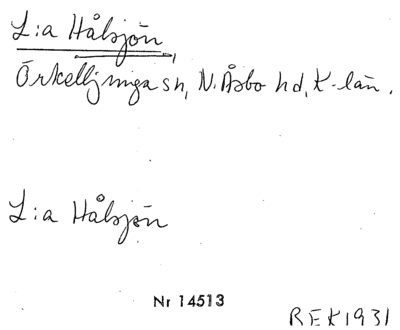 L:a Hålsjön
Örkelljunga sn, N. Åsbo hd, K-län.
L:a Hålsjön
Nr 14513
REK 1931